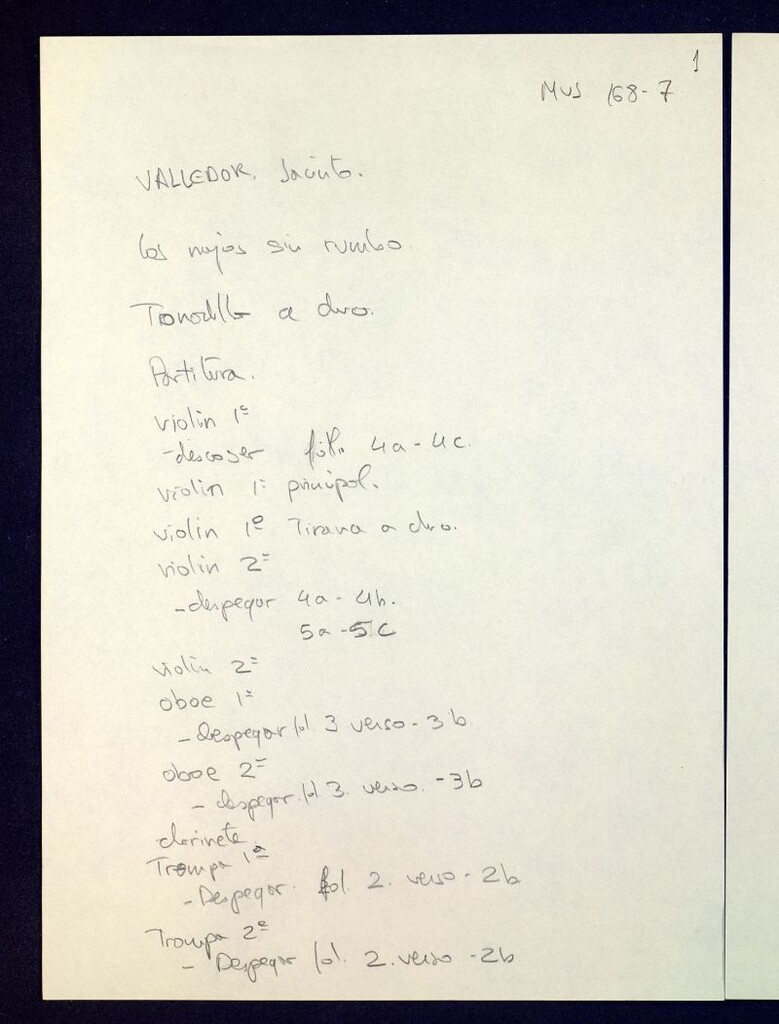 1
MUS 168-7
VALLEDOR, Jacinto.
Los majos sin rumbo
Tonadilla a duo.
Partitura.
violin 1º
- descoser fól. 4a - 4c.
violin 1º principal.
violin 1º Tirana a duo.
violin 2º
- despegar 4a - 4b.
5a - 5c
violin 2º
oboe 1º
- Despegar fol. 3 verso - 3b.
oboe 2º
- despegar fol. 3. verso. - 3b
clarinete.
Trompa 1ª
- Despegar. fol. 2. verso - 2b
Trompa 2ª
- Despegar fol. 2. verso - 2b